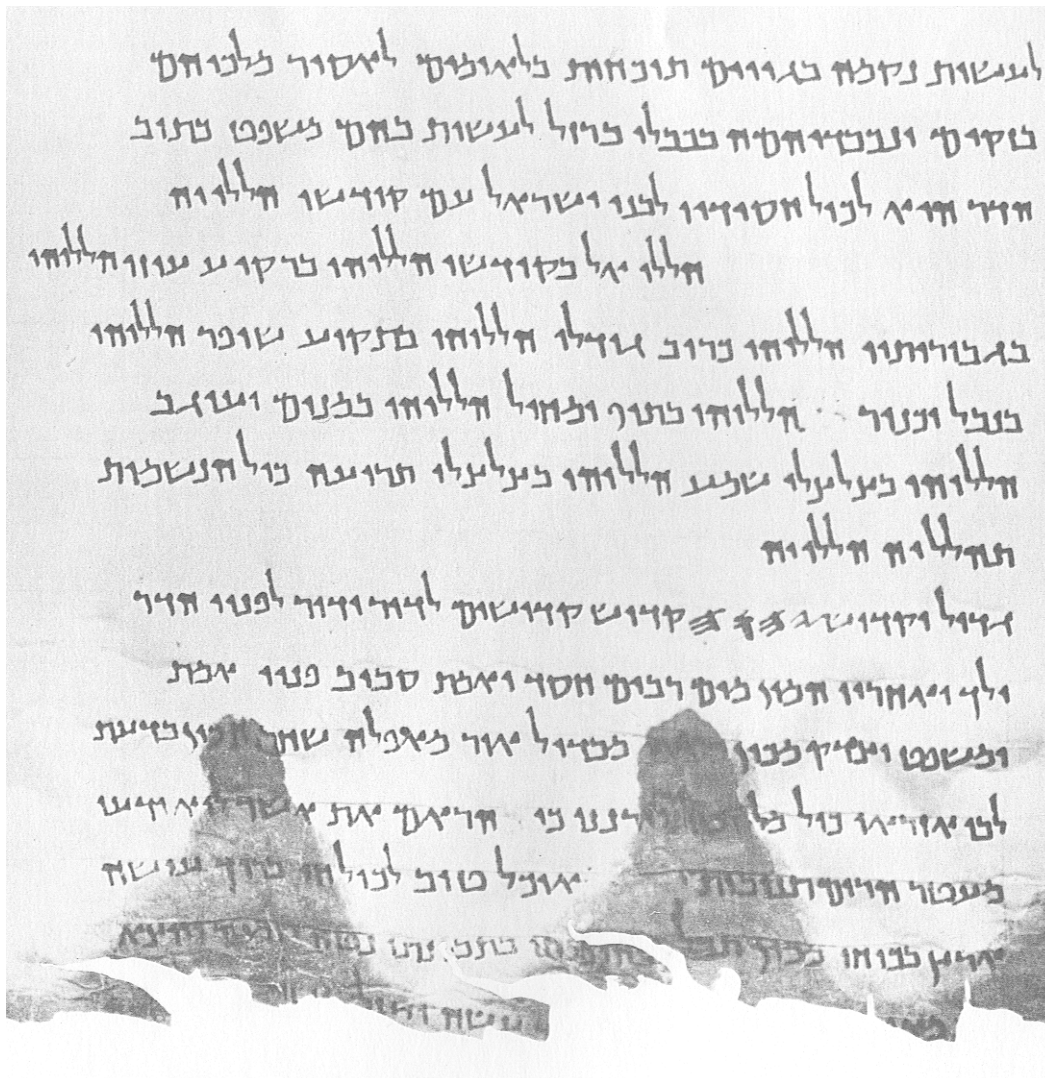 לעשות נקמה בגויים תוכחות בלאומים לאסור מלכיהם
בזקים ונכבדיהמה בכבלי ברזל לעשות בהם משפט כתוב
הדר הוא לכול חסידיו לבני ישראל עם קודשו הללויה
הללו אל בקודשו הללוהו ברקיע עוזו הללוהו
בגבורותיו הללוהו כרוב גודלו הללוהו בתקוע שופר הללוהו
בנבל וכנור הללוהו בתוף ומחול הללוהו במנים ועוגב
הללוהו בצלצלי שמע הללוהו בצלצלי תרועה כול הנשמות
תהלל יה הללויה
גדול וקדוש 𐤉𐤄𐤅𐤄 קדוש קדושים לדור ודור לפניו הדר
ילך ואחריו המון מים רבים חסד ואמת סביב פניו אמת
ומשפט וצדק מכון כסאו מבדיל אור מאפלה שחר הכין בדעת
לבו אז ראו כול מלאכיו וירננו כי הראם את אשר לוא ידעו
מעטר הרים תנובות אוכל טוב לכול חי ברוך עושה
ארץ בכוחו מכין תבל בחוכמתו בתבונתו נטה שמים ויוצא
עשה